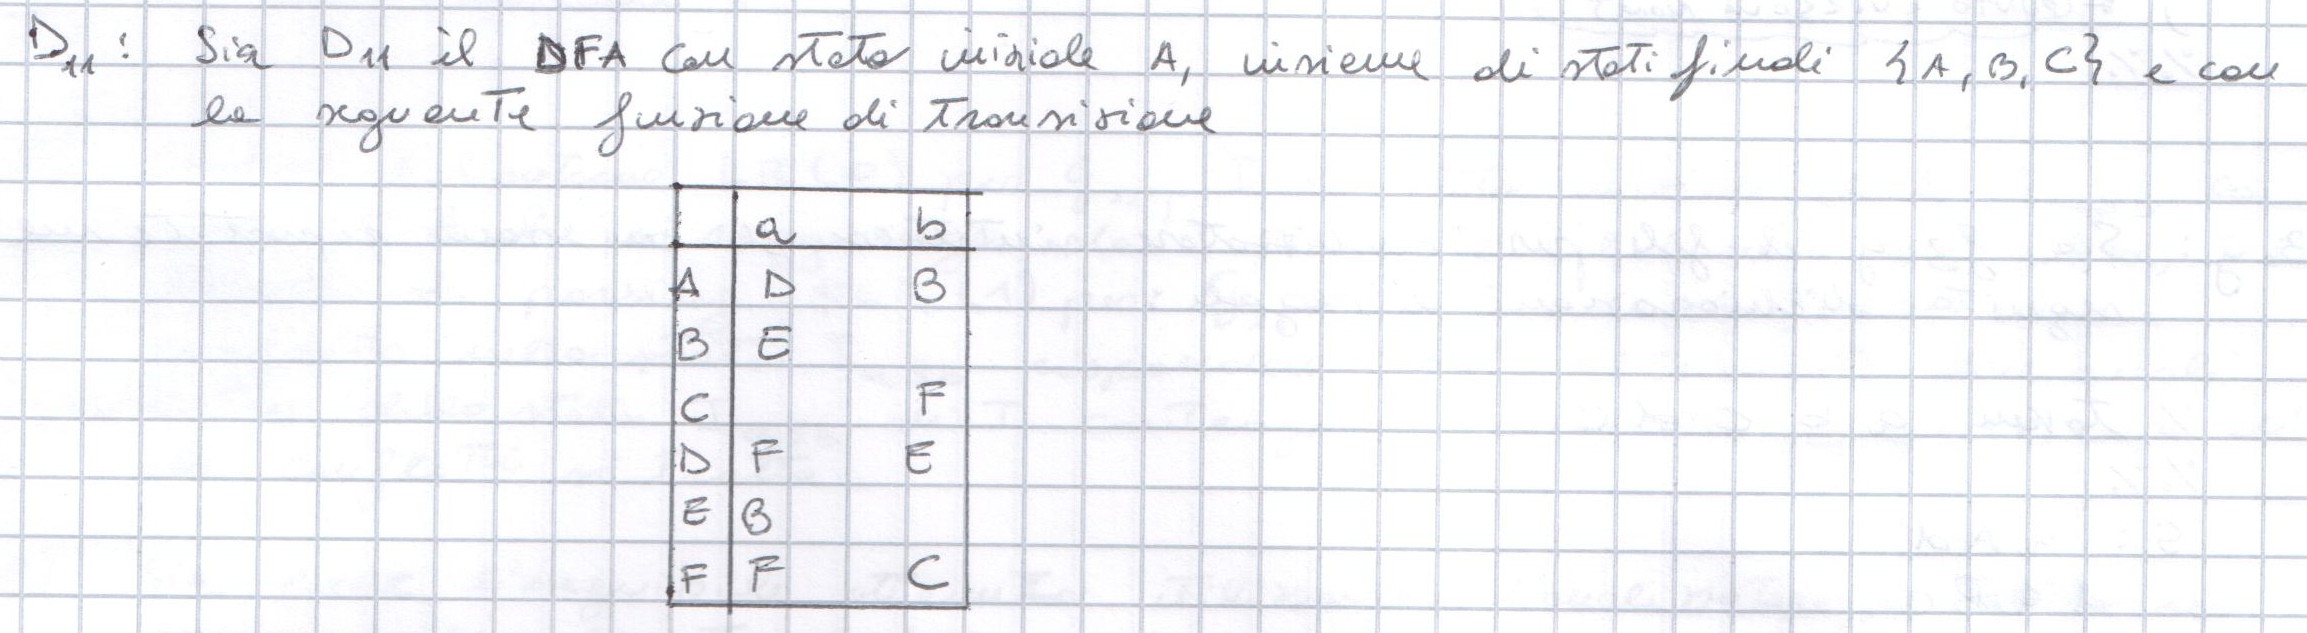 D11: Sia D11 il DFA con stato iniziale A, insieme di stati finali {A, B, C} e con
la seguente funzione di transizione
a b
A D B
B E
C F
D F E
E B
F F C